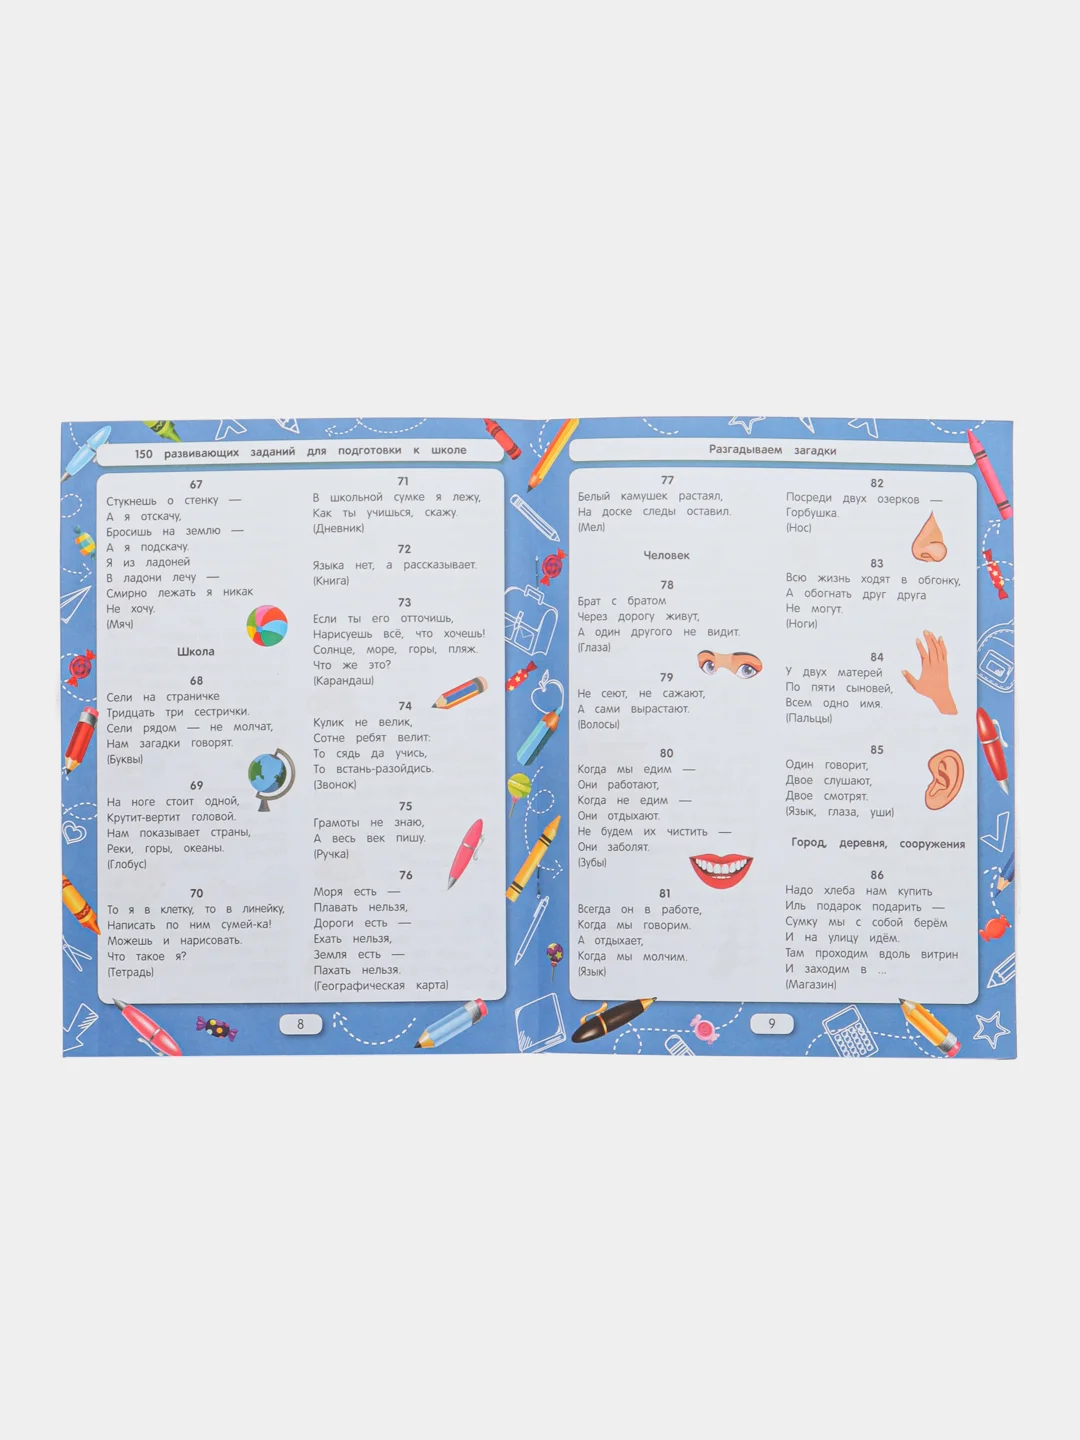 150 развивающих заданий для подготовки к школе
67
Стукнешь о стенку —
А я отскачу,
Бросишь на землю —
А я подскачу.
Я из ладоней
В ладони лечу —
Смирно лежать я никак
Не хочу.
(Мяч)
Школа
68
Сели на страничке
Тридцать три сестрички.
Сели рядом — не молчат,
Нам загадки говорят.
(Буквы)
69
На ноге стоит одной,
Крутит-вертит головой.
Нам показывает страны,
Реки, горы, океаны.
(Глобус)
70
То я в клетку, то в линейку,
Написать по ним сумей-ка!
Можешь и нарисовать.
Что такое я?
(Тетрадь)
71
В школьной сумке я лежу,
Как ты учишься, скажу.
(Дневник)
72
Языка нет, а рассказывает.
(Книга)
73
Если ты его отточишь,
Нарисуешь всё, что хочешь!
Солнце, море, горы, пляж.
Что же это?
(Карандаш)
74
Кулик не велик,
Сотне ребят велит:
То сядь да учись,
То встань-разойдись.
(Звонок)
75
Грамоты не знаю,
А весь век пишу.
(Ручка)
76
Моря есть —
Плавать нельзя,
Дороги есть —
Ехать нельзя,
Земля есть —
Пахать нельзя.
(Географическая карта)
8
Разгадываем загадки
77
Белый камушек растаял,
На доске следы оставил.
(Мел)
Человек
78
Брат с братом
Через дорогу живут,
А один другого не видит.
(Глаза)
79
Не сеют, не сажают,
А сами вырастают.
(Волосы)
80
Когда мы едим —
Они работают,
Когда не едим —
Они отдыхают.
Не будем их чистить —
Они заболят.
(Зубы)
81
Всегда он в работе,
Когда мы говорим.
А отдыхает,
Когда мы молчим.
(Язык)
82
Посреди двух озерков —
Горбушка.
(Нос)
83
Всю жизнь ходят в обгонку,
А обогнать друг друга
Не могут.
(Ноги)
84
У двух матерей
По пяти сыновей,
Всем одно имя.
(Пальцы)
85
Один говорит,
Двое слушают,
Двое смотрят.
(Язык, глаза, уши)
Город, деревня, сооружения
86
Надо хлеба нам купить
Иль подарок подарить —
Сумку мы с собой берём
И на улицу идём.
Там проходим вдоль витрин
И заходим в ...
(Магазин)
9